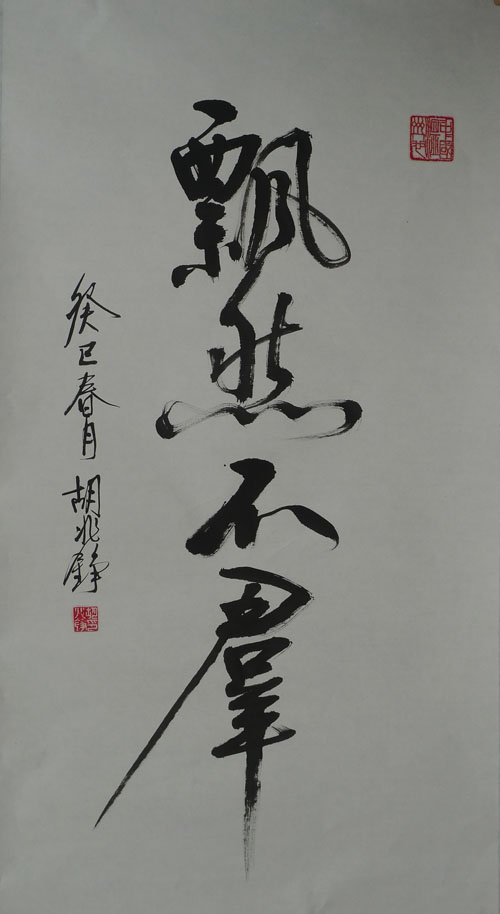 飘然不羣
癸巳春月 胡兆錚